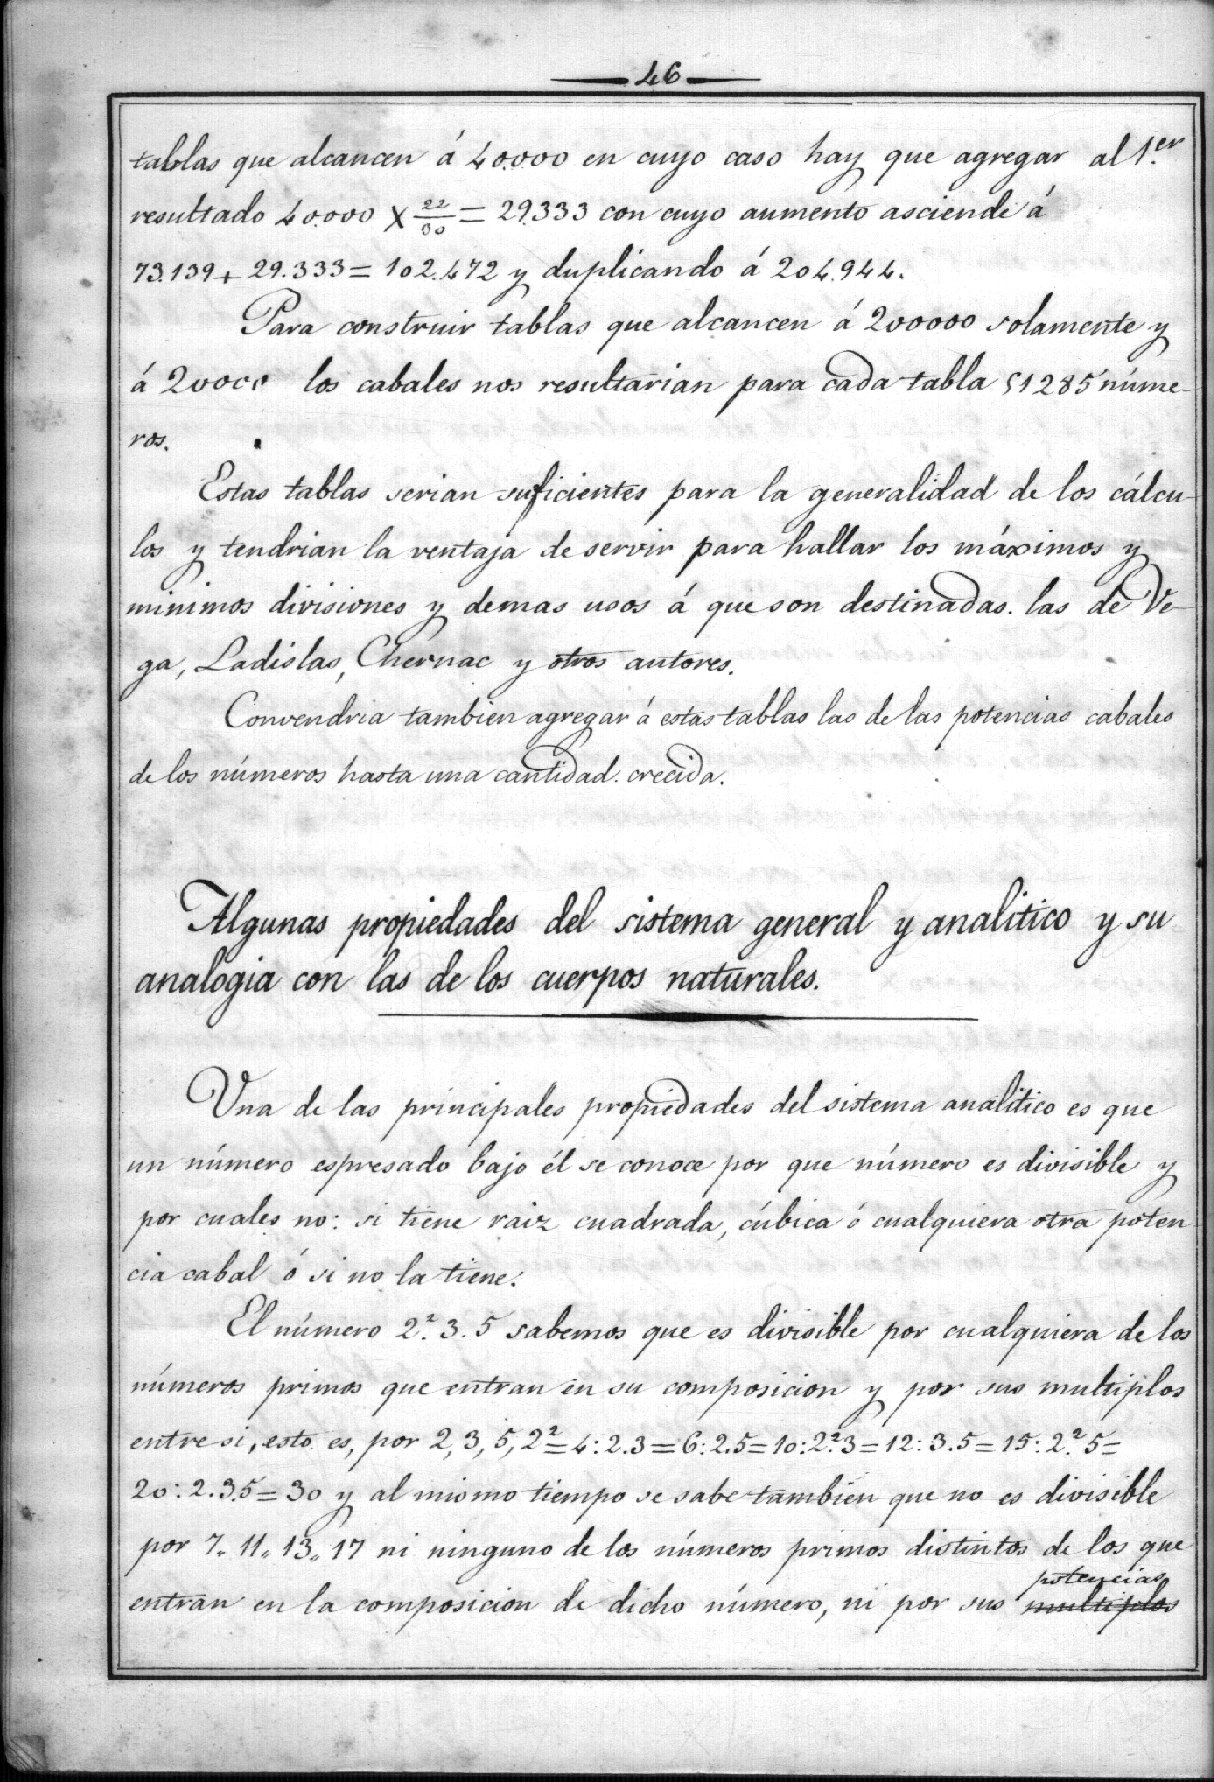 46
tablas que alcancen á 40.000 en cuyo caso hay que agregar al 1.er
resultado 40.000 × 22/30 = 29.333 con cuyo aumento asciende á
73.139 + 29.333 = 102.472 y duplicando á 204.944.
Para construir tablas que alcancen á 200000 solamente y
á 20000 los cabales nos resultarian para cada tabla 51285 núme-
ros.
Estas tablas serian suficientes para la generalidad de los cálcu-
los y tendrian la ventaja de servir para hallar los máximos y
minimos divisiones y demas usos á que son destinadas. las de Ve-
ga, Ladislas, Chernac y otros autores.
Convendria tambien agregar á estas tablas las de las potencias cabales
de los números hasta una cantidad. crecida.
Algunas propiedades del sistema general y analitico y su
analogia con las de los cuerpos naturales.
Una de las principales propiedades del sistema analitico es que
un número espresado bajo él se conoce por que número es divisible y
por cuales no: si tiene raiz cuadrada, cúbica ó cualquiera otra poten
cia cabal ó si no la tiene.
El número 2².3.5 sabemos que es divisible por cualquiera de los
números primos que entran en su composicion y por sus multiplos
entre si, esto es, por 2, 3, 5, 2²=4: 2.3=6: 2.5=10: 2².3=12: 3.5=15: 2².5=
20: 2.3.5=30 y al mismo tiempo se sabe tambien que no es divisible
por 7. 11. 13. 17 ni ninguno de los números primos distintos de los que
potencias
entran en la composicion de dicho número, ni por sus multiplos